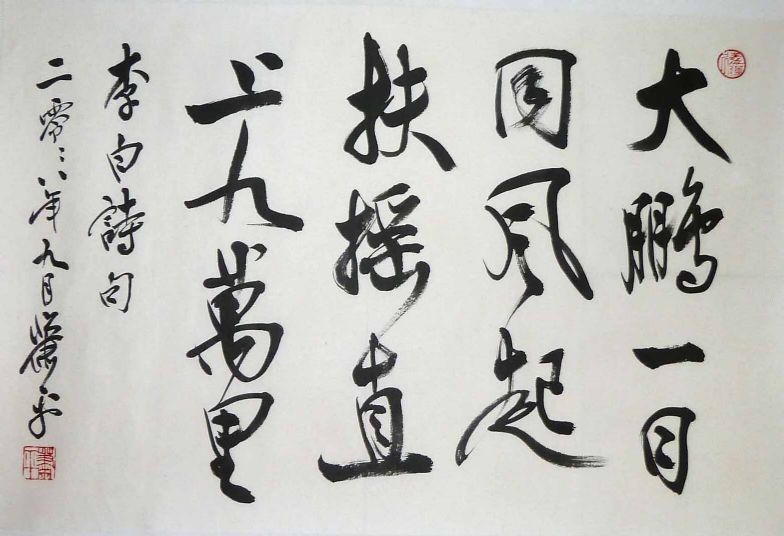 大鹏一日
同风起
扶摇直
上九萬里
李白詩句
二零〻八年九月